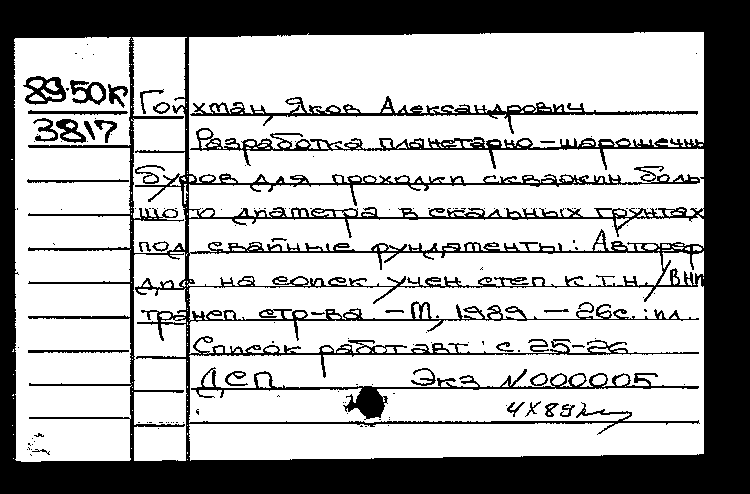 89-50К
3817
Гойхман, Яков Александрович.
Разработка планетарно-шарошечны
буров для проходки скважин боль-
шого диаметра в скальных грунтах
под свайные фундаменты: Автореф
дис на соиск. учен степ. к.т.н. / ВНИ
трансп. стр-ва. - М., 1989. - 26с.: ил.
Список работ авт.: с. 25-26
ДСП Экз N000005